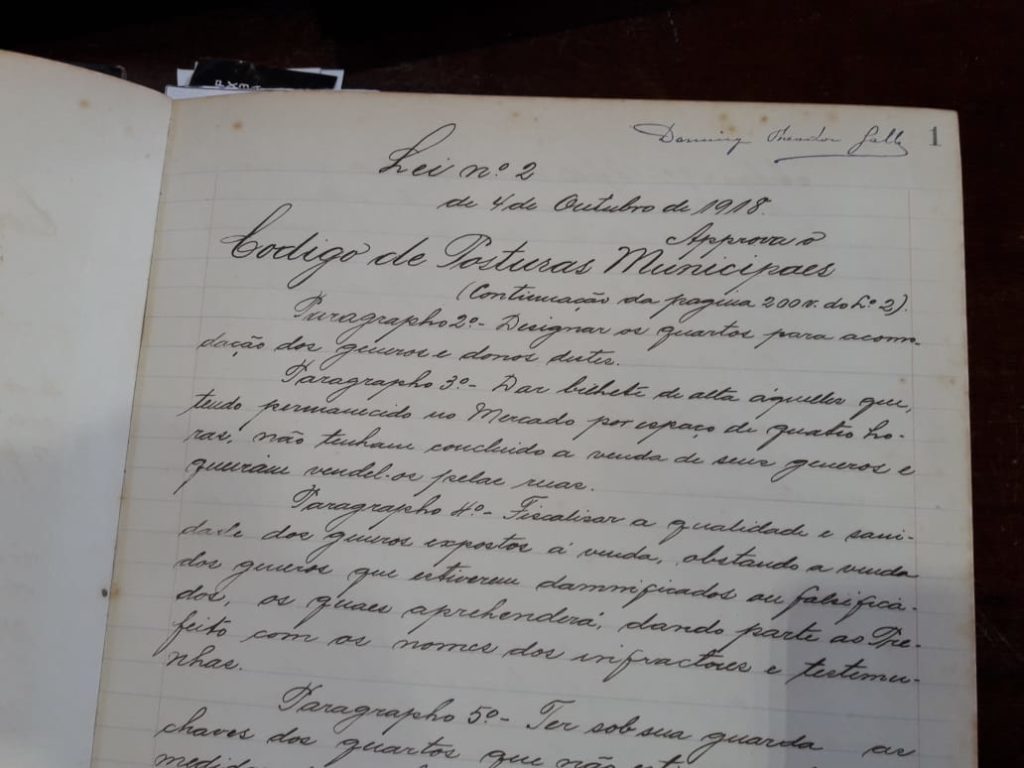 1
Lei nº 2
de 4 de Outubro de 1918.
Approva o
Codigo de Posturas Municipaes
(Continuação da pagina 200v. do Lº 2).
Paragrapho 2º - Designar os quartos para acomo-
dação dos generos e donos destes.
Paragrapho 3º - Dar bilhete de alta áquelles que,
tendo permanecido no Mercado por espaço de quatro ho-
ras, não tenham concluido a venda de seus generos e
queiram vendel-os pelas ruas.
Paragrapho 4º - Fiscalisar a qualidade e sani-
dade dos generos expostos á venda, obstando a venda
dos generos que estiverem damnificados ou falsifica-
dos, os quaes aprehenderá, dando parte ao Pre-
feito com os nomes dos infractores e testemu-
nhas.
Paragrapho 5º - Ter sob sua guarda as
chaves dos quartos que não